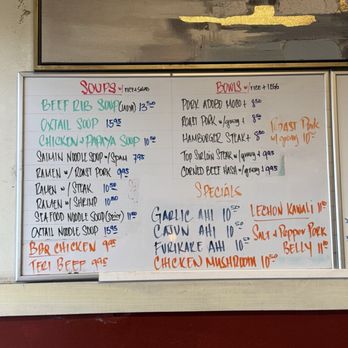 SOUPS w/ rice + salad
BEEF RIB SOUP (LUNG) 13.50
OXTAIL SOUP 15.95
CHICKEN + PAPAYA SOUP 10.50
SAIMIN NOODLE SOUP w/ SPAM 7.95
RAMEN w/ ROAST PORK 9.95
RAMEN w/ STEAK 10.50
RAMEN w/ SHRIMP 10.50
SEA FOOD NOODLE SOUP (SPICY) 11.00
OXTAIL NOODLE SOUP 15.95
BBQ CHICKEN 9.95
TERI BEEF 9.95
BOWLS w/ rice + 1 egg
PORK ADOBO MOCO + 8.50
ROAST PORK w/ gravy + 8.50
HAMBURGER STEAK + 8.50
TOP SIRLOIN STEAK w/ gravy + 9.95
CORNED BEEF HASH w/ gravy + 9.95
ROAST PORK
w/ gravy 10.00
SPECIALS
GARLIC AHI 10.50
CAJUN AHI 10.50
FURIKAKE AHI 10.50
CHICKEN MUSHROOM 10.50
LECHON KAWALI 11.00
SALT + PEPPER PORK
BELLY 11.00